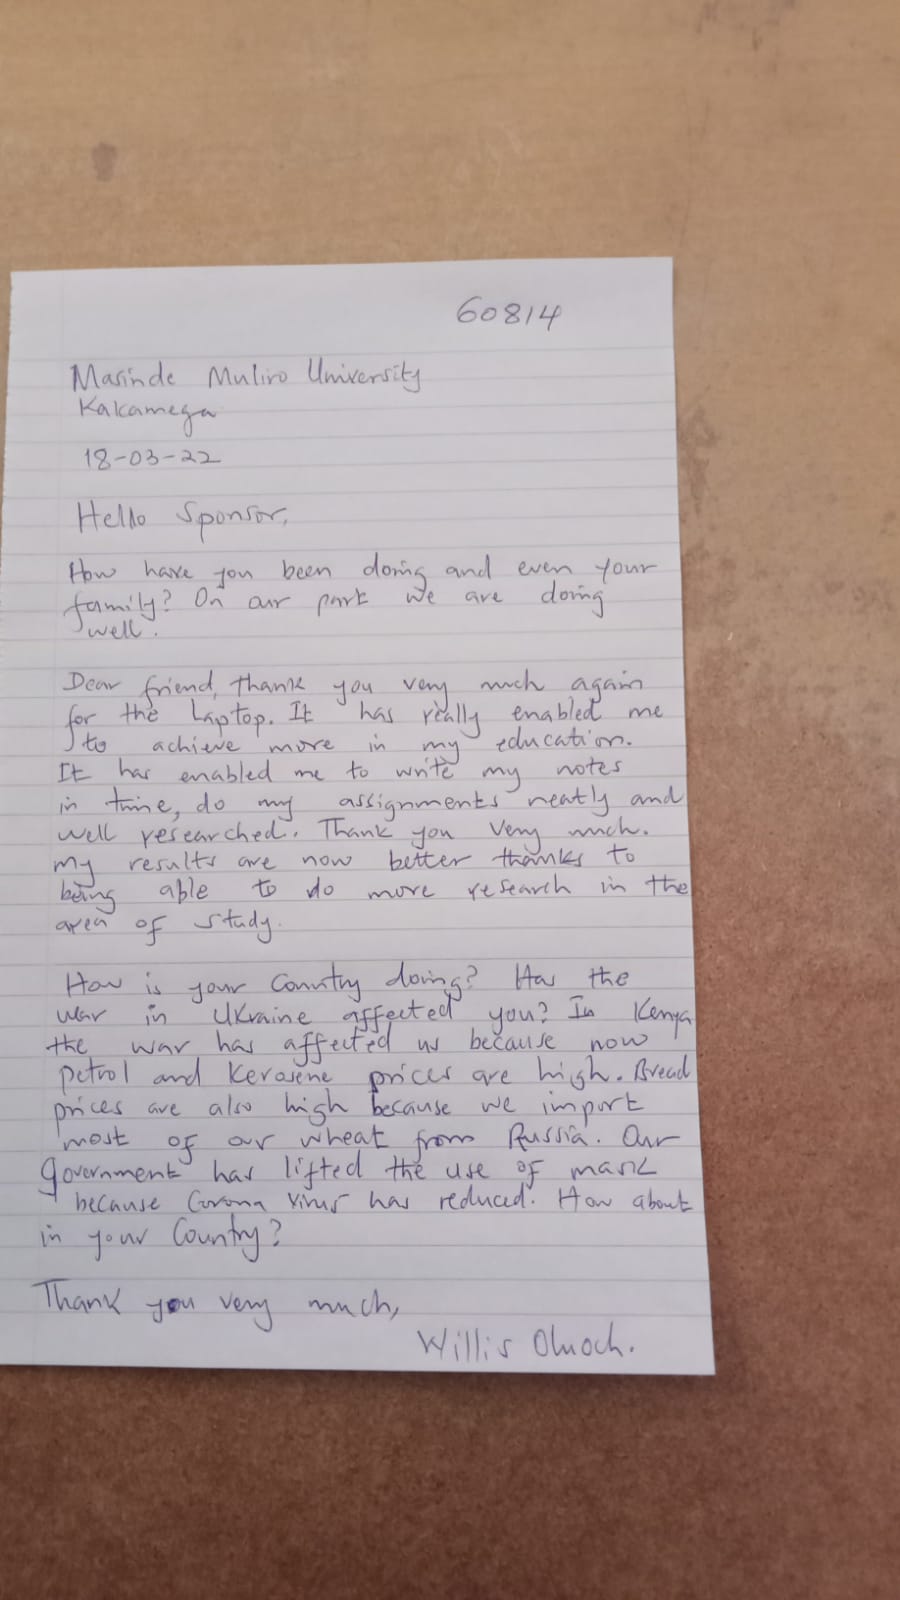 60814
Masinde Muliro University
Kakamega
18-03-22
Hello Sponsor,
How have you been doing and even your
family? On our part we are doing
well.
Dear friend, thank you very much again
for the Laptop. It has really enabled me
to achieve more in my education.
It has enabled me to write my notes
in time, do my assignments neatly and
well researched. Thank you very much.
My results are now better thanks to
being able to do more research in the
area of study.
How is your Country doing? Has the
war in Ukraine affected you? In Kenya
the war has affected us because now
petrol and kerosene prices are high. Bread
prices are also high because we import
most of our wheat from Russia. Our
Government has lifted the use of mask
because Corona virus has reduced. How about
in your Country?
Thank you very much,
Willis Oluoch.